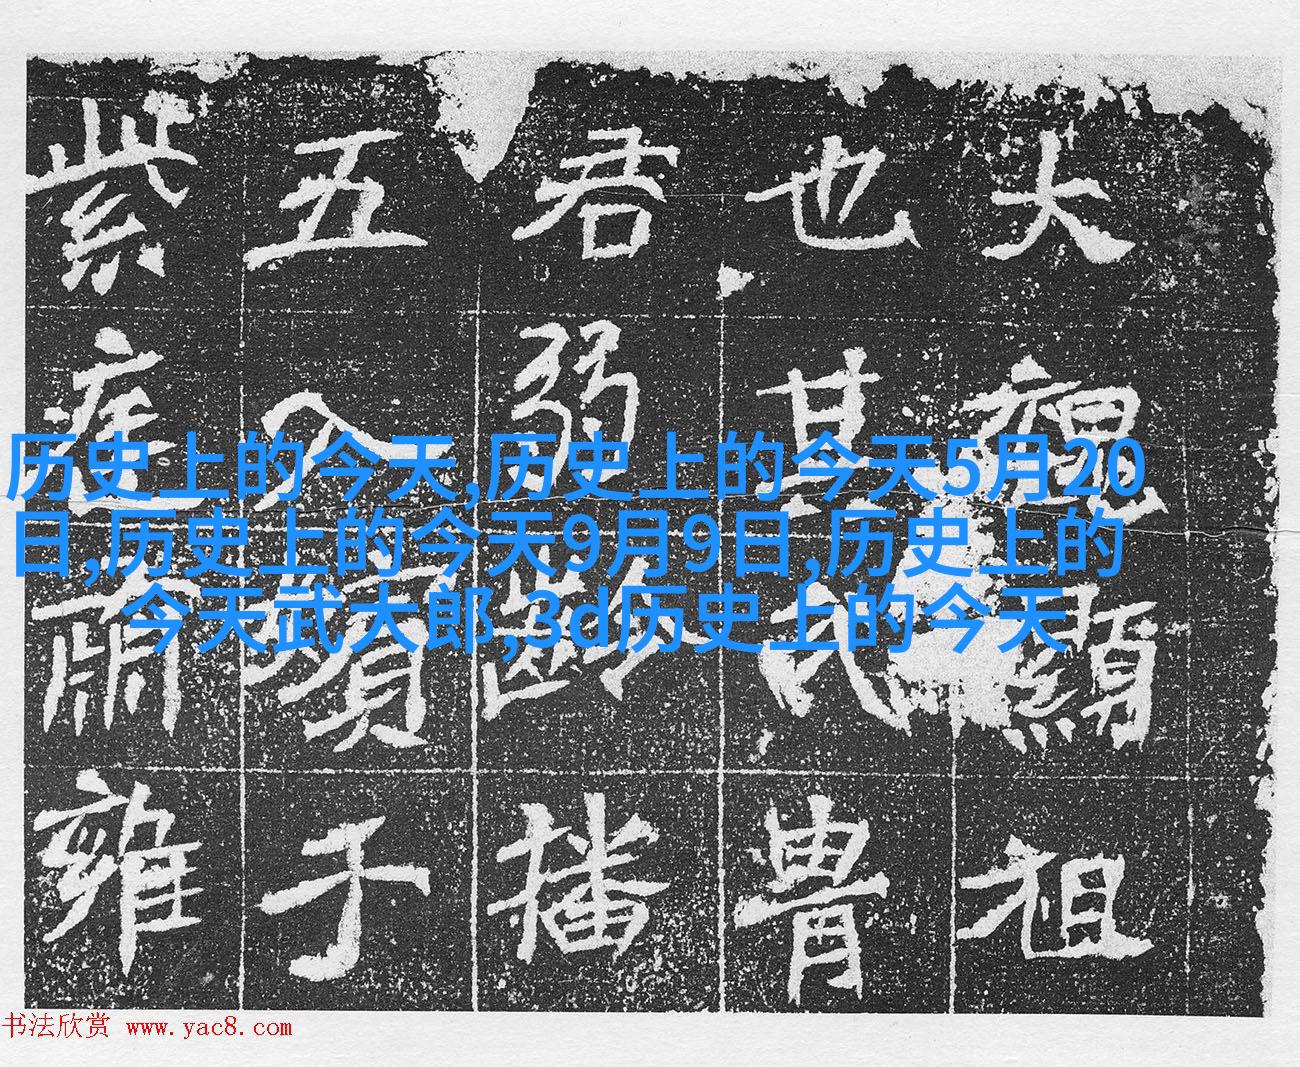 历史上的今天,历史上的今天5月20
日,历史上的今天9月9日,历史上的
今天武大郎,3d历史上的今天
大顯祖
也其氏胄
君弱齡播
五入賓于
紫庭肅雍
书法欣赏 www.yac8.com